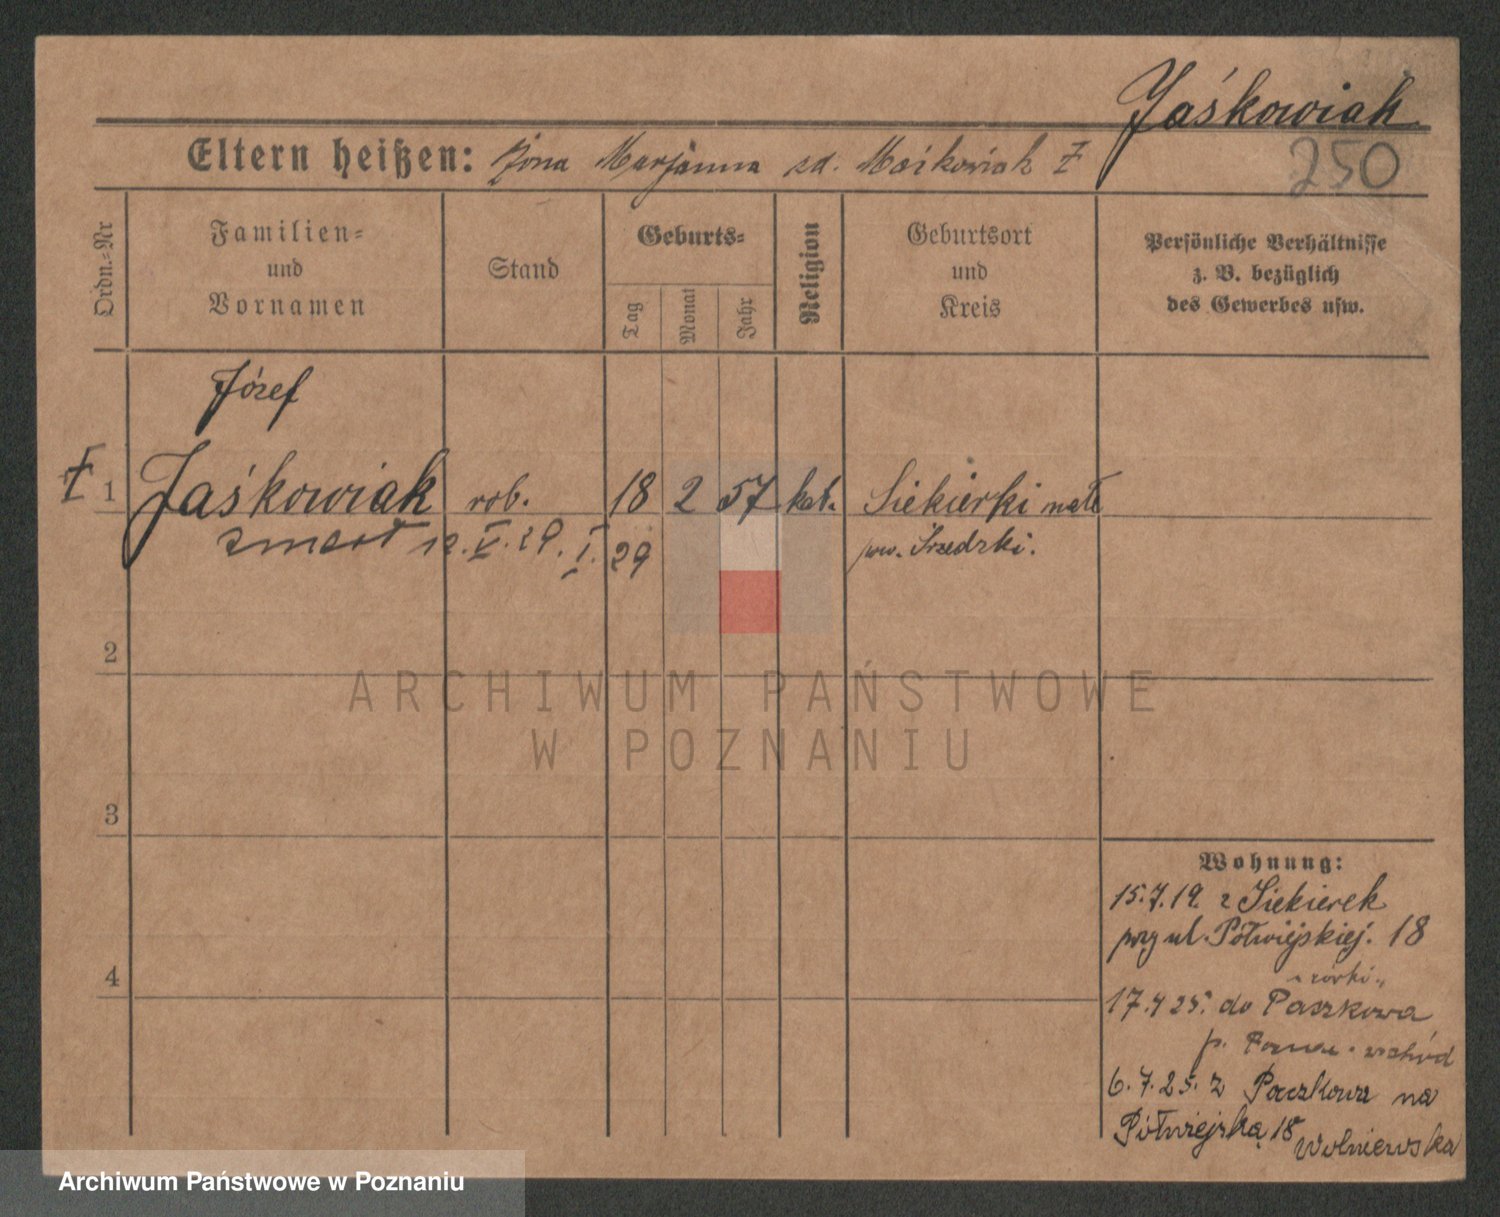 Jaśkowiak
Eltern heißen: żona Marjanna zd. Maćkowiak
250
Ordn.-Nr
Familien-
und
Vornamen
Stand
Geburts-
Tag
Monat
Jahr
Religion
Geburtsort
und
Kreis
Persönliche Verhältnisse
z. B. bezüglich
des Gewerbes usw.
Józef
1 Jaśkowiak rob. 18 2 57 kat. Siekierki małe
zmarł 12. V. 29. I. 29 pow. Średzki.
2
3
4
Wohnung:
15.7.19. z Siekierek
przy ul. Półwiejskiej. 18
u córki
17.4 25. do Paszkowa
p. wschód
6.7.25. z Paczkowa na
Półwiejską 18
Wolniewska
ARCHIWUM PAŃSTWOWE
W POZNANIU
Archiwum Państwowe w Poznaniu